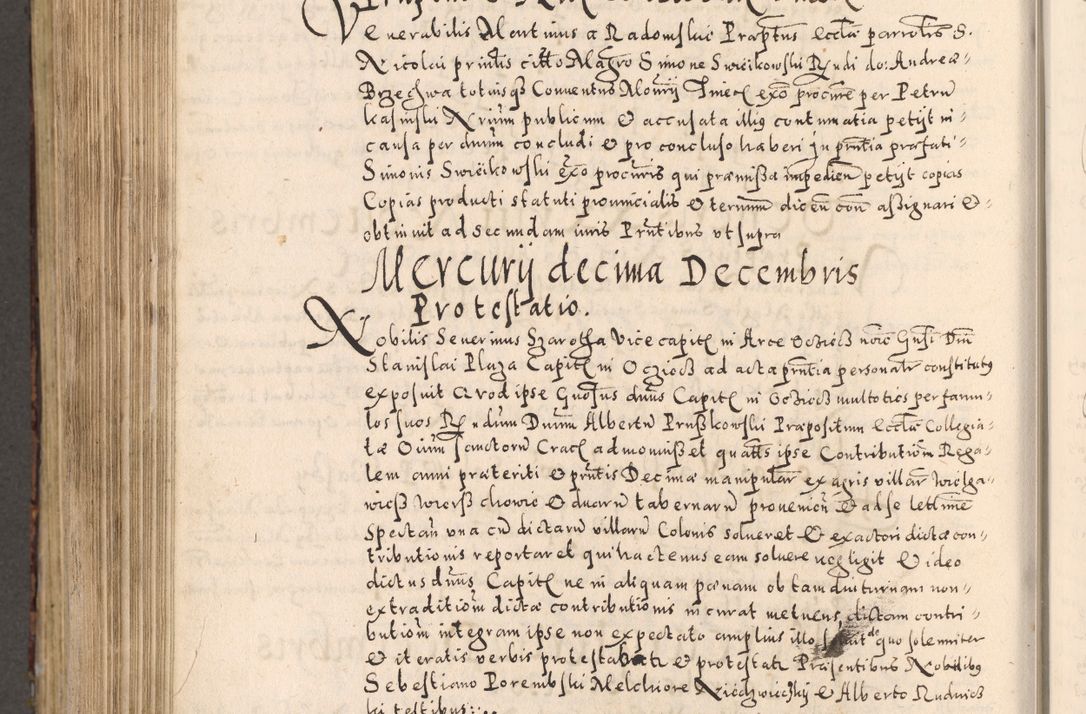 Venerabilis Martinus a Radomskie Praeptus Eccliae parrolis S.
Nicolai printis citto Magro Simone Swieikowski Rndi do: Andreae
Brzechwa totiusqz Conuentus Monrij Tinec exo procure per Petru
kasinski Nrium publicum & accusata illiq contumatia petijt in
causa per dnum concludi & pro concluso haberi in pntia praefati
Simonis Swieikowski exo procuris qui praemissa impedien petijt copias
Copias producti statuti prouincialis & terminum dicen con assignari &
obtinuit ad secundam iuris Pntibus vt supra
Mercurij decima Decembris
Protestatio.
Nobilis Seuerinus Szarocha Vice capit in Arce noie Gnsi Dni
Stanislai Plaza Capit in ad acta pntia personalr constitutq
exposuit Quod ipse Gnosus dnus Capit in multoties per famu
los suos Rndum Dnum Albertu Pruszkowski Praepositum Eccliae Collegia
tae Oium sanctorum Crac admonuisset quatts ipse Contributiom Rega
lem anni praeteriti & pntis Decimae manipular ex agris villar
& duaru tabernaru prouenien & ad se
spectan vna cu dictaru villaru Colonis solueret & exactori dictae con
tributionis reportaret qui hactenus eam soluere negligit & ideo
dictus dnus Capit ne in aliquam paenam ob tam diuturnam non
extraditiom dictae contributionis incurat metuens dictam contri
butiom integram ipse non expectato amplius illo soluit de quo solenniter
& iteratis verbis protestabatr & protestatr Praesentibus Nobilibq
Sebestiano Porembski Melchiore Niedzwieczky & Alberto Rudnic
ki testibus